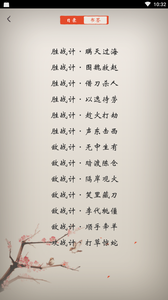 10:32
目录
书签
胜战计·瞒天过海
胜战计·围魏救赵
胜战计·借刀杀人
胜战计·以逸待劳
胜战计·趁火打劫
胜战计·声东击西
敌战计·无中生有
敌战计·暗渡陈仓
敌战计·隔岸观火
敌战计·笑里藏刀
敌战计·李代桃僵
敌战计·顺手牵羊
攻战计·打草惊蛇